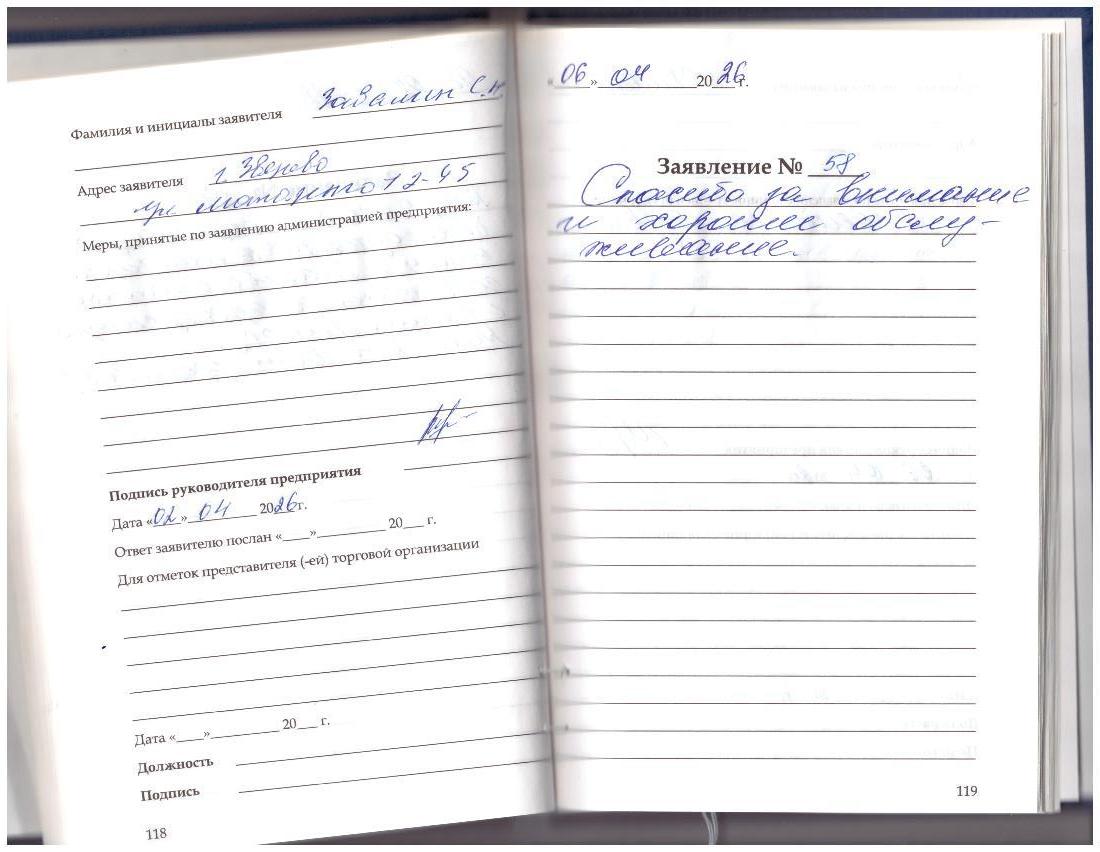 Завалин С.Н.
Фамилия и инициалы заявителя
Адрес заявителя г. Зверево
ул. 12-45
Меры, принятые по заявлению администрацией предприятия:
Подпись руководителя предприятия
Дата «02» 04 2026г.
Ответ заявителю послан «___»__________ 20___ г.
Для отметок представителя (-ей) торговой организации
Дата «____»__________ 20___ г.
Должность
Подпись
118
«06» 04 2026г.
Заявление № 58
Спасибо за внимание
и хорошее обслу-
живание.
119